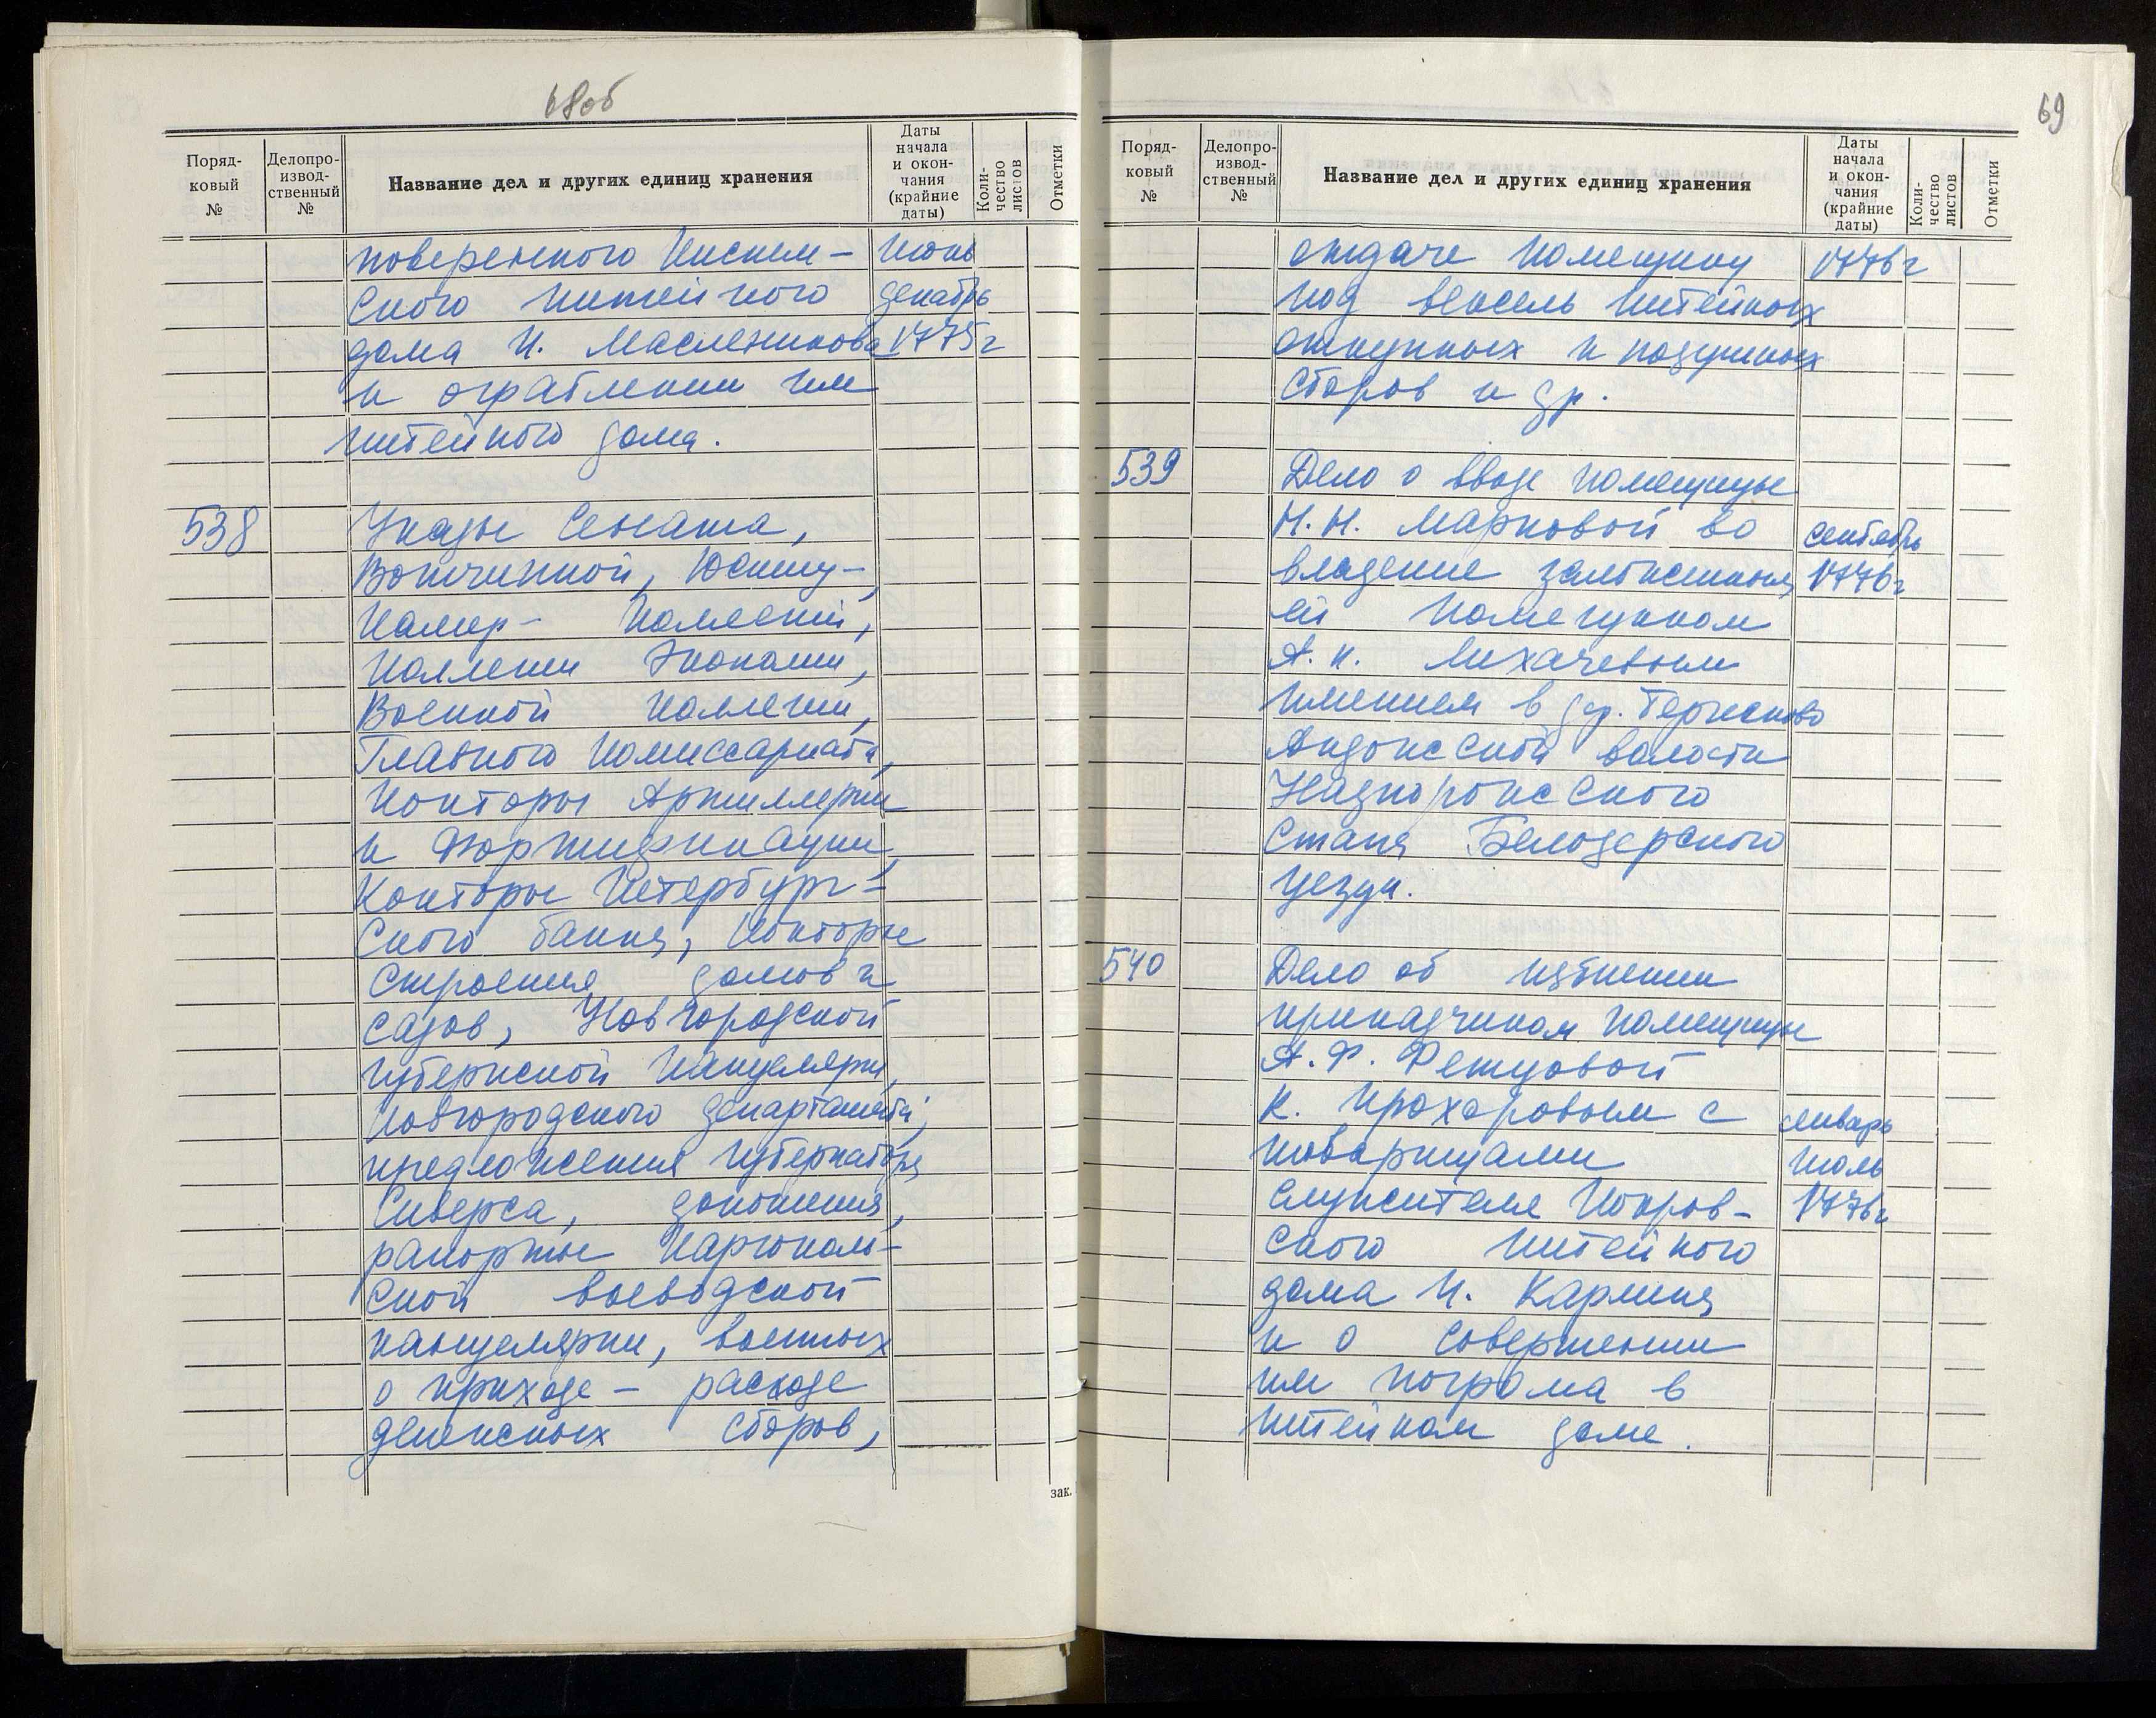 68об
Поряд-
ковый
№
Делопро-
извод-
ственный
№
Название дел и других единиц хранения
Даты
начала
и окон-
чания
(крайние
даты)
Коли-
чество
листов
Отметки
поверенного
ского питейного
дома И. Масленикова
и ограблении им
питейного дома.
Июнь
декабрь
1775г
538
Указы Сената,
Вотчинной, Юстиц-,
Камер- Коллегий,
Коллегии Экономии,
Военной Коллегии,
Главного Комиссариата,
Конторы Артиллерии
и Фортификации,
Конторы Петербург-
ского банка, Конторы
строения домов и
садов, Новгородской
губернской Канцелярии,
Новгородского департамента,
предложения губернатора
Сиверса, доношения,
рапорты Каргополь-
ской воеводской
канцелярии, военных
о приходе - расходе
денежных сборов,
зак.
69
Поряд-
ковый
№
Делопро-
извод-
ственный
№
Название дел и других единиц хранения
Даты
начала
и окон-
чания
(крайние
даты)
Коли-
чество
листов
Отметки
отдаче помещику
под вексель питейных
откупных и подушных
сборов и др.
1776г
539
Дело о вводе помещицы
Н.Н. Марковой во
владение заложенным
ей помещиком
А.И. Лихачевым
имением в дер.
Андожской волости
Надпорожского
стана Белозерского
уезда.
сентябрь
1776г
540
Дело об избиении
приказчиком помещицы
А.Ф. Фетцовой
К. Прохоровым с
товарищами
служителя Покров-
ского питейного
дома И. Карлина
и о совершении
им погрома в
питейном доме.
январь
июль
1776г